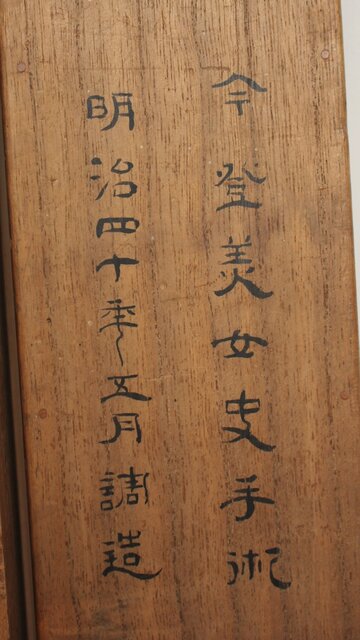 今登美女史手術
明治四十季五月調造